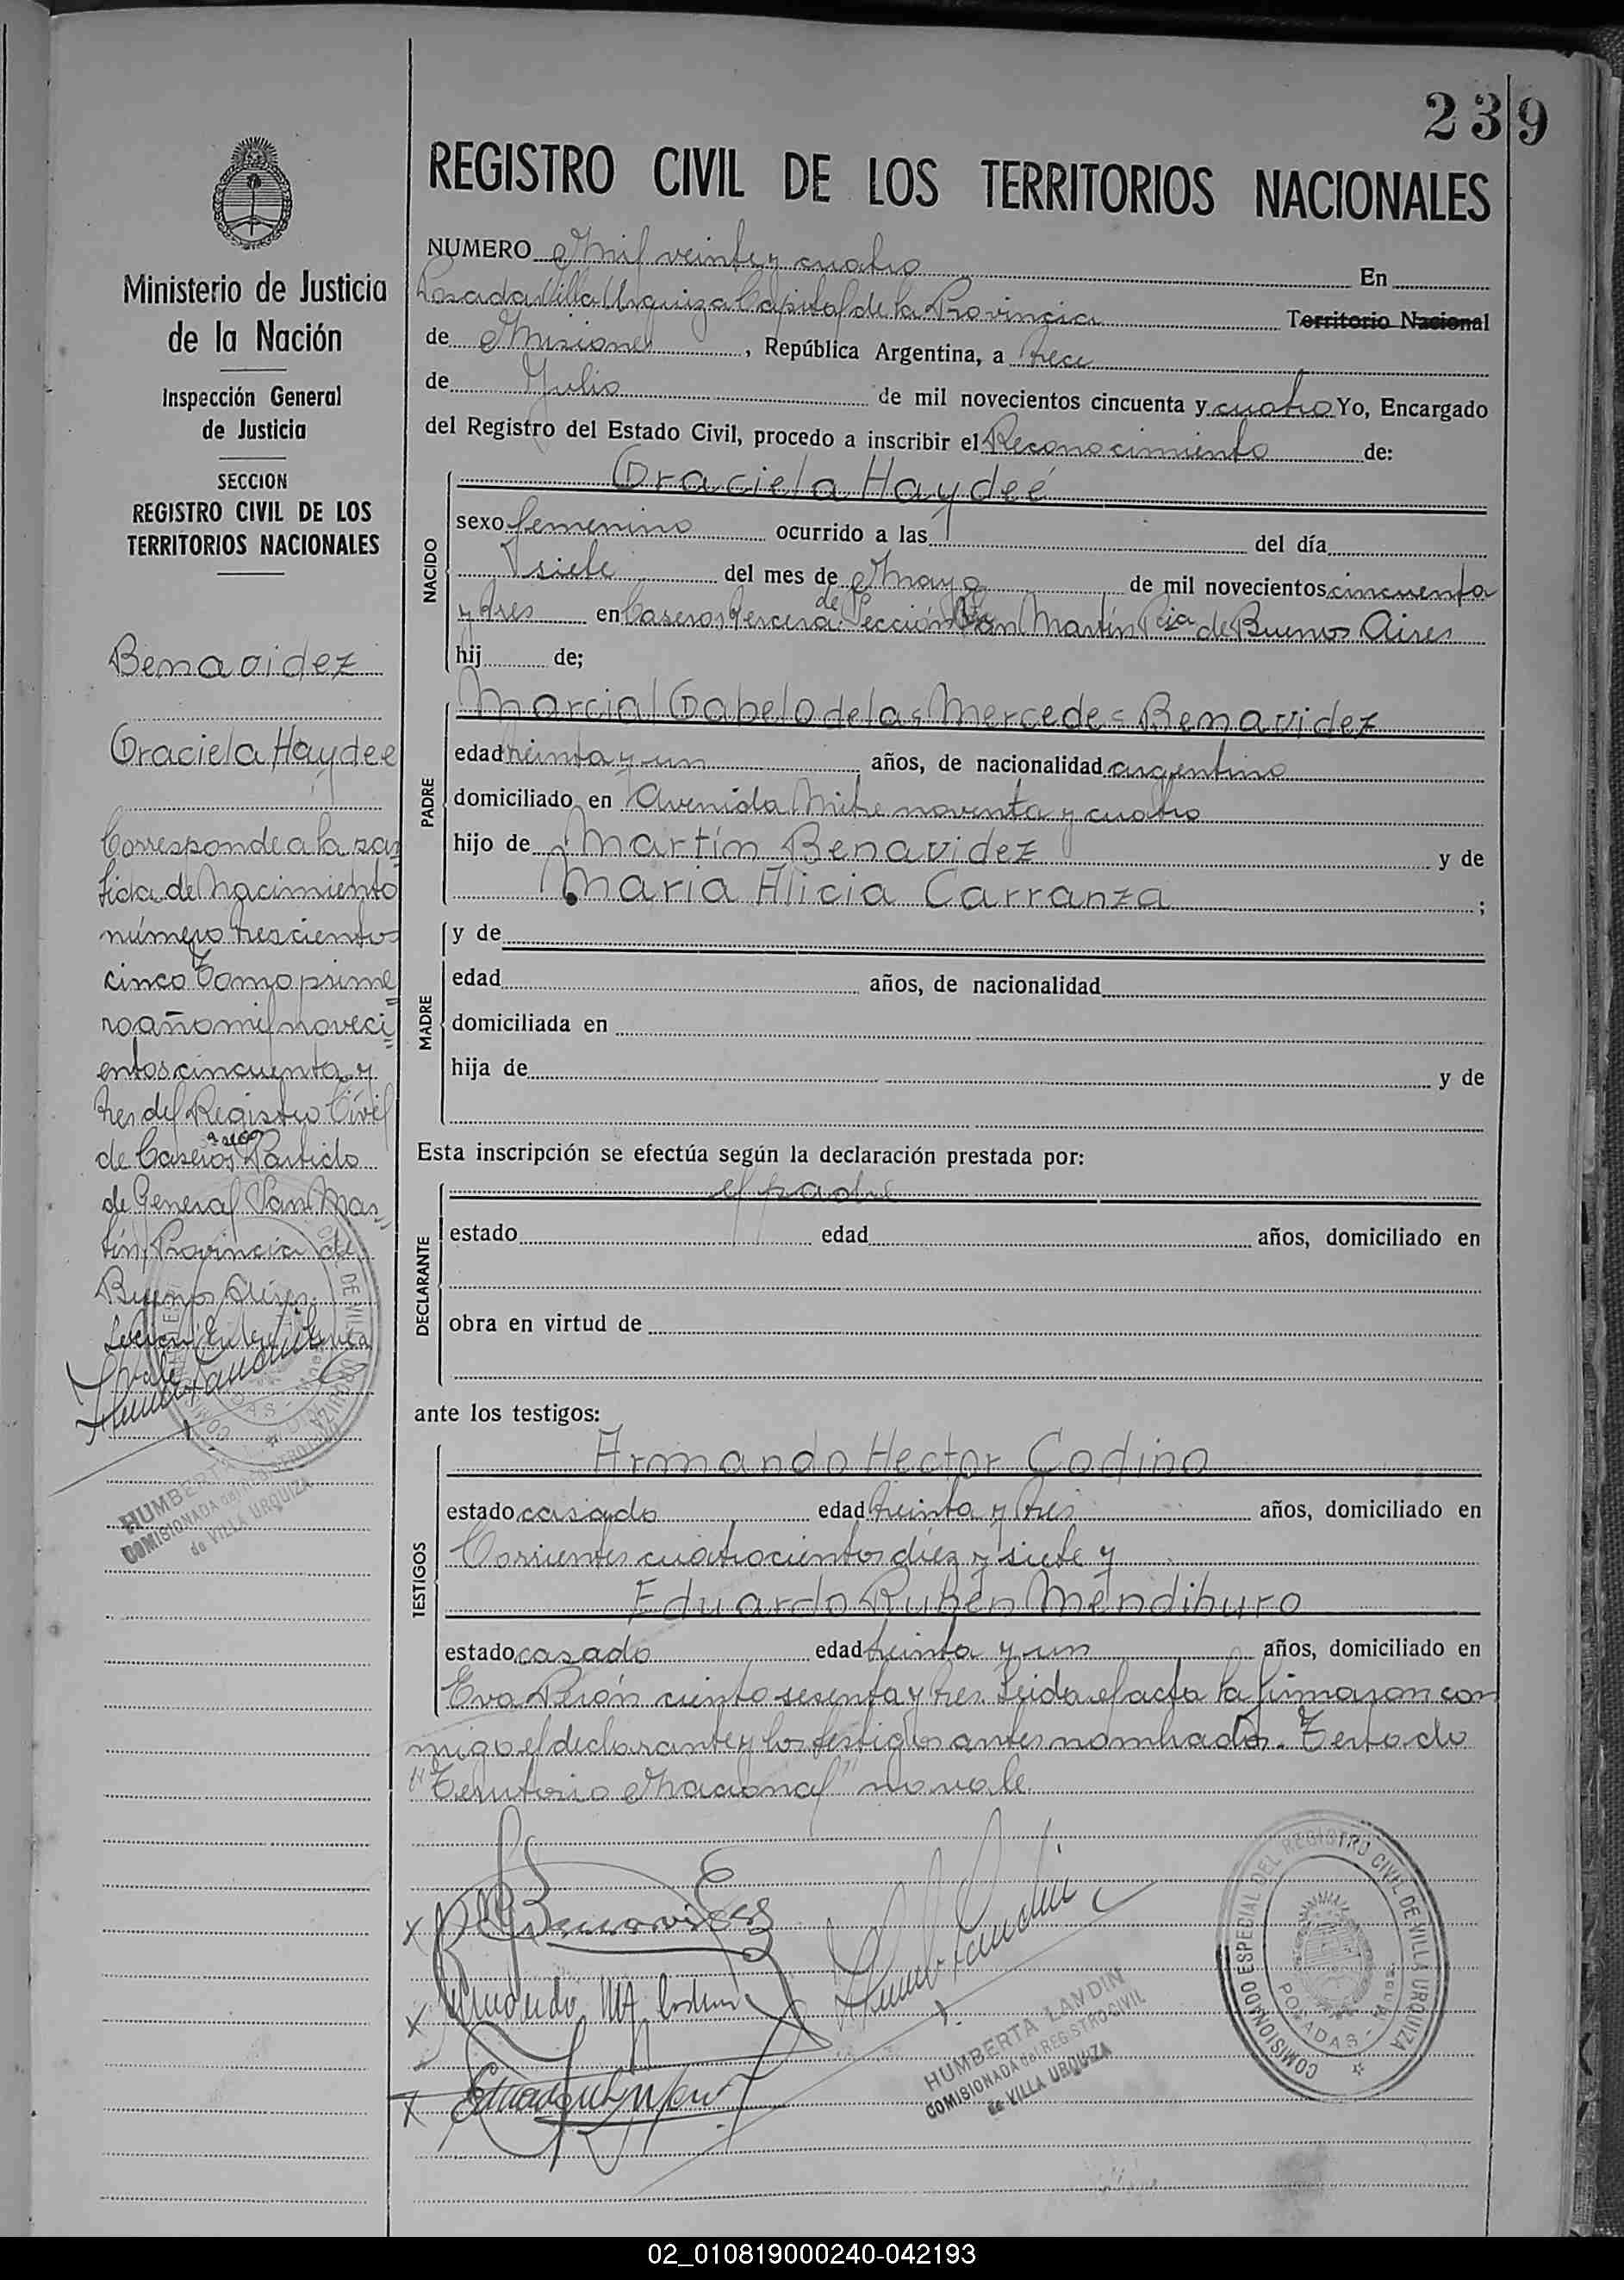 239
REGISTRO CIVIL DE LOS TERRITORIOS NACIONALES
Ministerio de Justicia
de la Nación
Inspección General
de Justicia
SECCION
REGISTRO CIVIL DE LOS
TERRITORIOS NACIONALES
Benavidez
Graciela Haydee
Corresponde a la par
tida de Nacimiento
número trescientos
cinco Tomo prime
ro año mil noveci
entos cincuenta y
tres del Registro Civil
de Caseros Partido
de General San Mar
tín, Provincia de
Buenos Aires.
Vale
HUMBERTA LANDIN
COMISIONADA del REGISTRO CIVIL
de VILLA URQUIZA
NUMERO Mil veinte y cuatro En
Posadas Villa Urquiza Capital de la Provincia Territorio Nacional
de Misiones, República Argentina, a trece
de Julio de mil novecientos cincuenta y cuatro Yo, Encargado
del Registro del Estado Civil, procedo a inscribir el Reconocimiento de:
NACIDO
Graciela Haydeé
sexo femenino ocurrido a las del día
siete del mes de Mayo de mil novecientos cincuenta
y tres en Caseros tercera Sección de San Martín Pcia de Buenos Aires
hij de;
PADRE
Marcial Gabelo de las Mercedes Benavidez
edad treinta y un años, de nacionalidad argentino
domiciliado en Avenida Mitre noventa y cuatro
hijo de Martín Benavidez y de
Maria Alicia Carranza ;
MADRE
y de
edad años, de nacionalidad
domiciliada en
hija de y de
Esta inscripción se efectúa según la declaración prestada por:
DECLARANTE
el padre
estado edad años, domiciliado en
obra en virtud de
ante los testigos:
TESTIGOS
Armando Hector Codino
estado casado edad treinta y tres años, domiciliado en
Corrientes cuatrocientos diez y siete y
Eduardo Rubén Mendiburo
estado casado edad treinta y un años, domiciliado en
Eva Perón ciento sesenta y tres. Leida el acta la firmaron con
migo el declarante y los testigos antes nombrados. Testado
"Territorio Nacional" no vale.
HUMBERTA LANDIN
COMISIONADA del REGISTRO CIVIL
de VILLA URQUIZA
COMISIONADO ESPECIAL DEL REGISTRO CIVIL DE VILLA URQUIZA
POSADAS - Mnes.
02_010819000240-042193